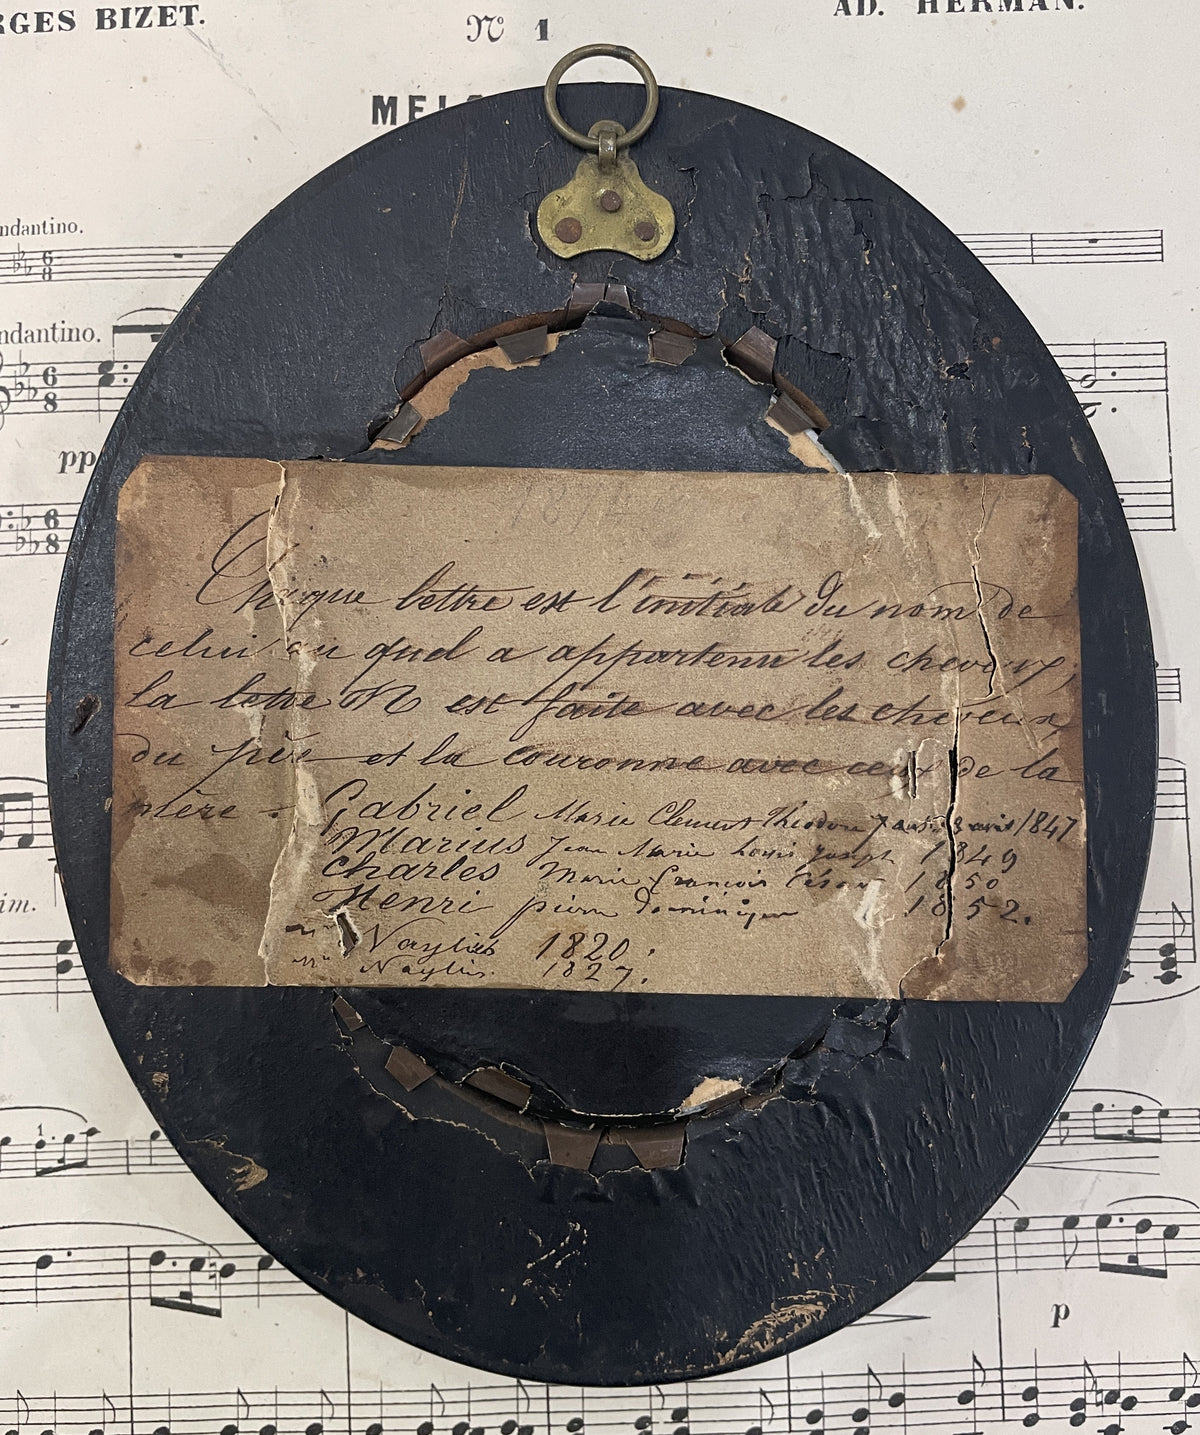 RGES BIZET.
AD. HERMAN.
№ 1
MEL
ndantino.
ndantino.
pp
1874
Chaque lettre est l'initiale du nom de
celui au quel a appartenu les cheveux;
la lettre N est faite avec les cheveux
du père et la couronne avec ceux de la
mère :
Gabriel Marie Clement Théodore 3 avril 1847
Marius Jean Marie Louis joseph 1849
Charles Marie François César 1850
Henri pierre dominique 1852.
Naylies 1820.
Naylies. 1827.
im.
1
p